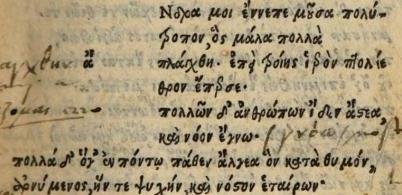 Νδρα μοι ἔννεπε μοῦσα πολύ-
τροπον, ὃς μάλα πολλὰ
πλάγχθη. ἐπεὶ τροίης ἱερὸν πτολίε
θρον ἔπερσε.
πολλῶν δ' ἀνθρώπων ἴδεν ἄστεα,
καὶ νόον ἔγνω.
πολλὰ δ' ὅγ' ἐν πόντῳ πάθεν ἄλγεα ὃν κατὰ θυμόν,
ἀρνύμενος, ἥν τε ψυχὴν, καὶ νόστον ἑταίρων.